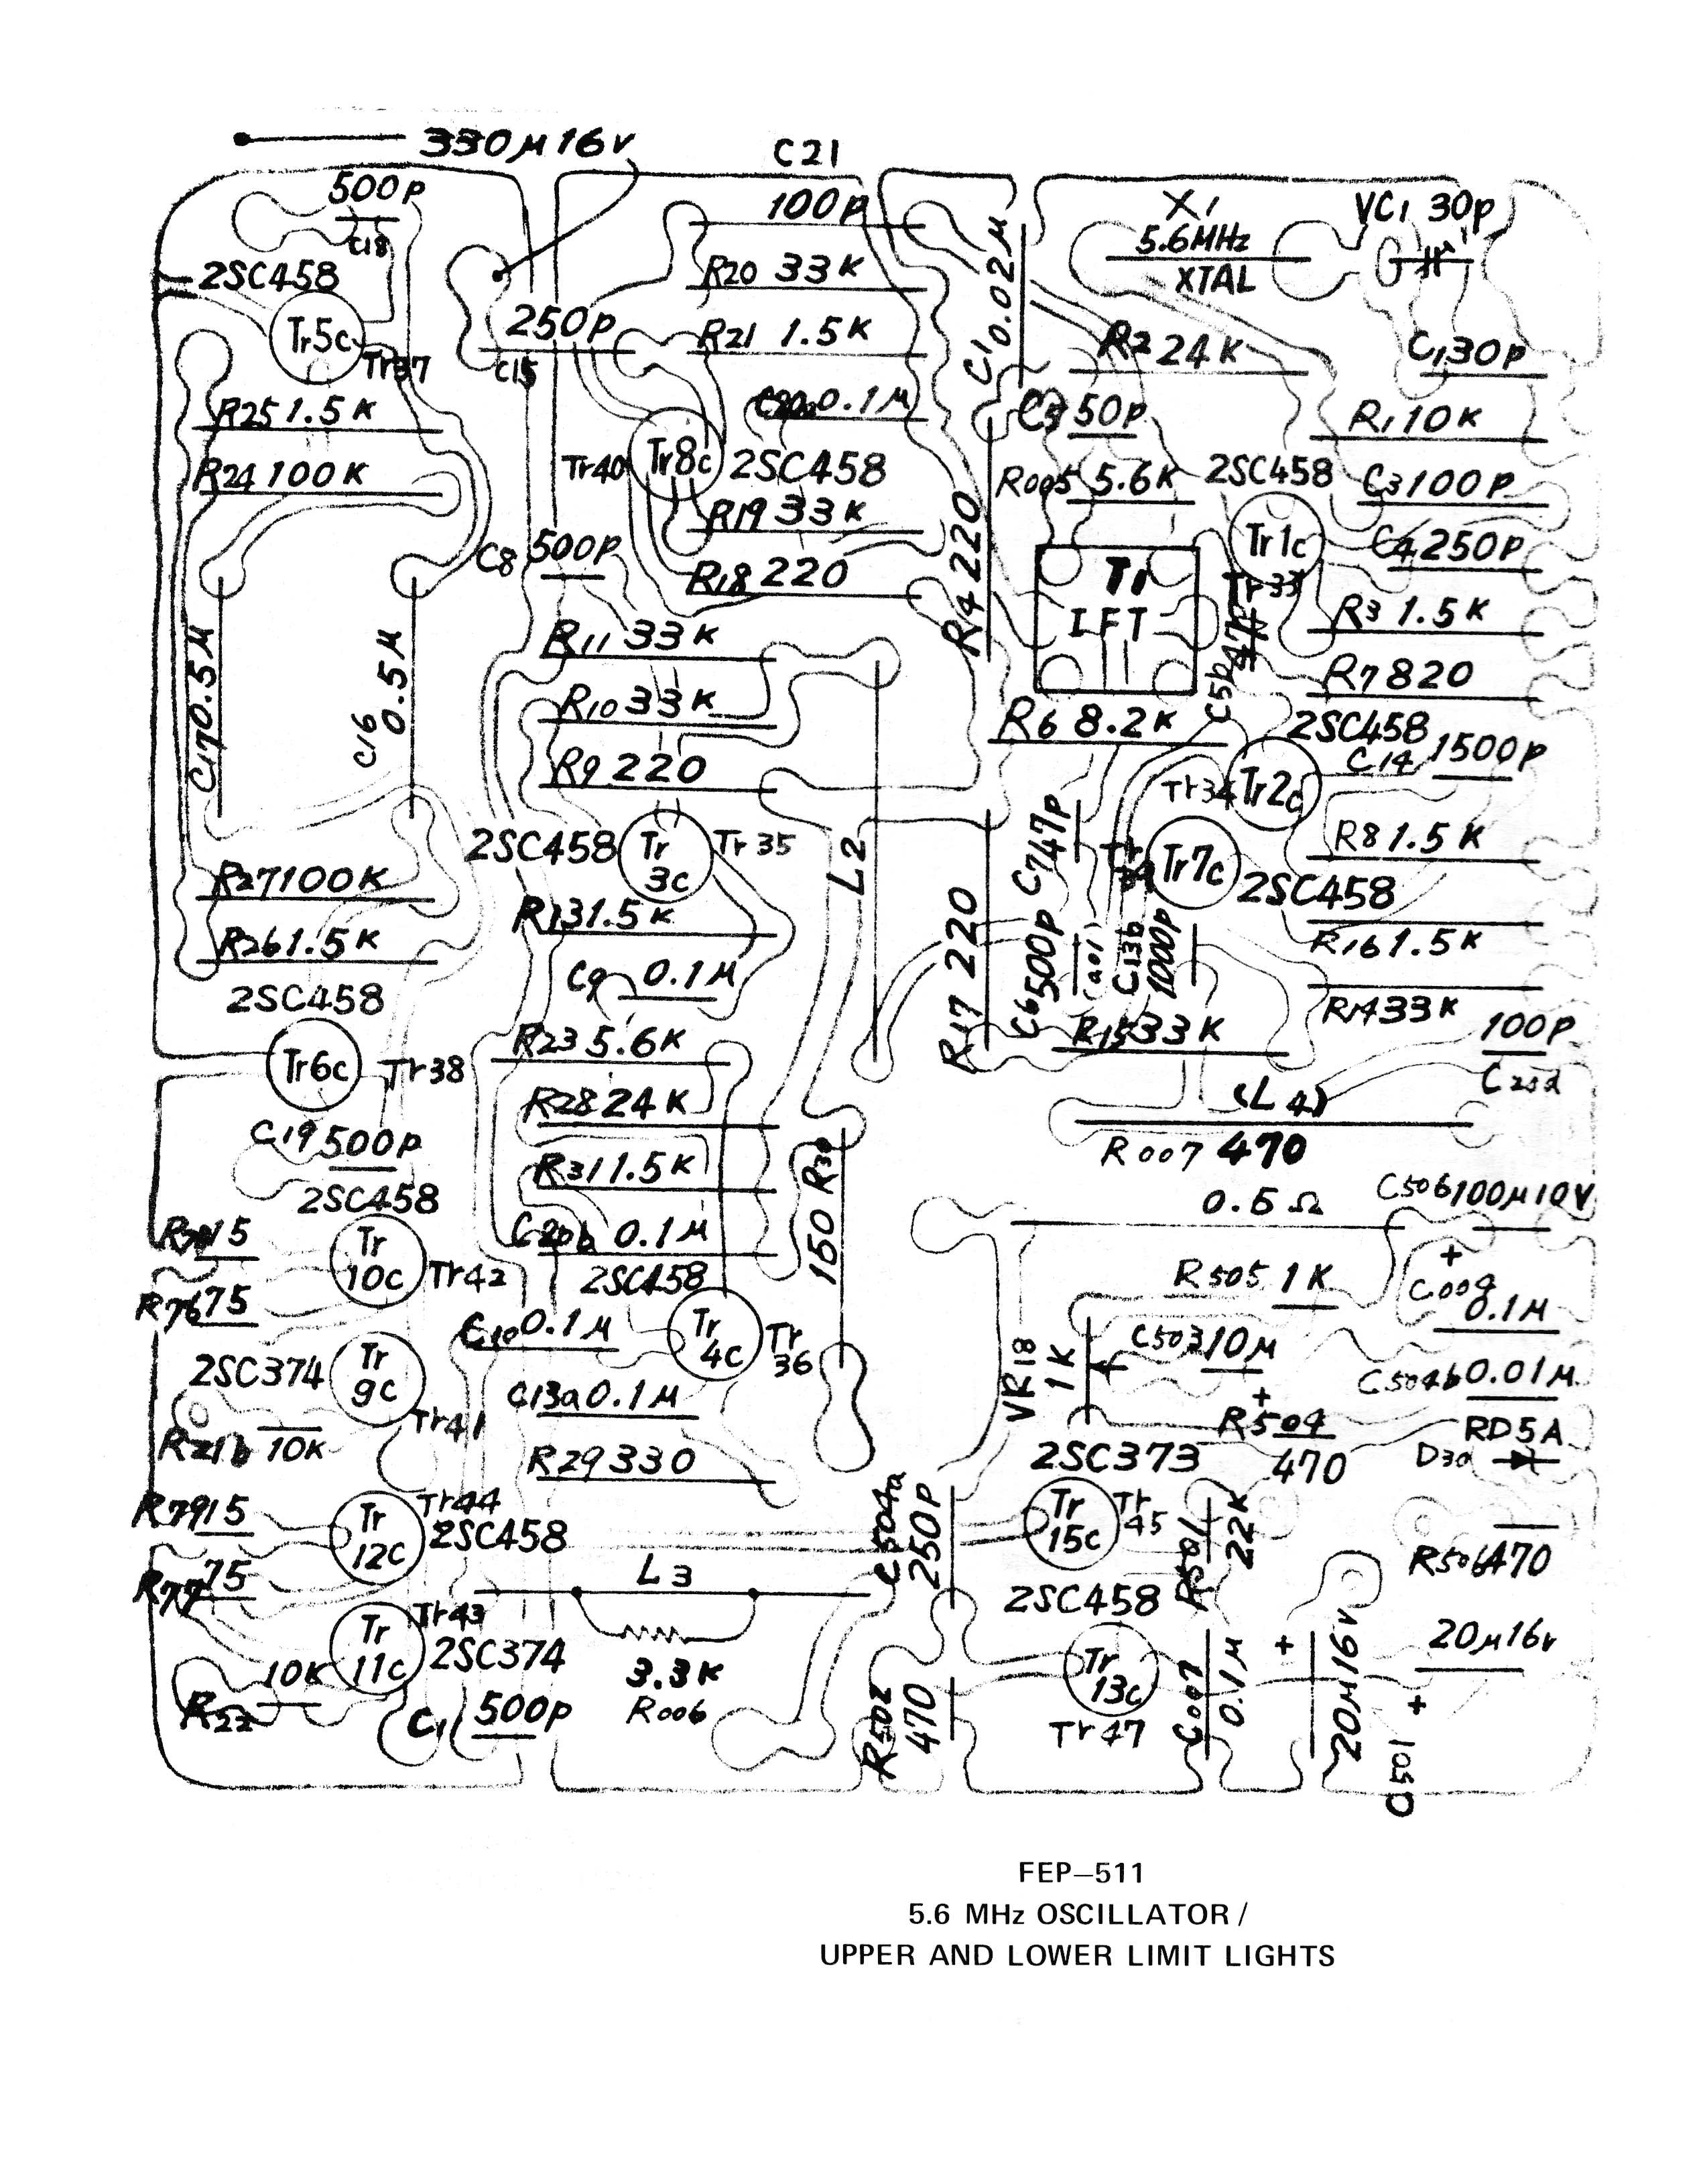 330μ16v
C21
500p
C18
100p
X1
5.6MHz
XTAL
VC1 30p
2SC458
Tr5c
Tr37
R20 33K
C1 0.02μ
250p
C15
R21 1.5K
R2 24K
C1 30p
R25 1.5K
0.1μ
50p
R1 10K
R24 100K
Tr40
Tr8c
2SC458
R005 5.6K
2SC458
C3 100p
R19 33K
R4 220
Tr1c
C4 250p
C8 500p
R18 220
T1
IFT
Tr33
R3 1.5K
R11 33K
C17 0.5μ
C16
0.5μ
C5b
R7 820
R10 33K
R6 8.2K
2SC458
C14 1500p
R9 220
Tr34
Tr2c
2SC458
Tr
3c
Tr35
L2
C7 47p
Tr7c
2SC458
R8 1.5K
R27 100K
R13 1.5K
R17 220
C6 500p
C13b
1000p
R16 1.5K
R26 1.5K
C9 0.1μ
2SC458
R14 33K
Tr6c
Tr38
R23 5.6K
R15 33K
100p
R28 24K
(L4)
C19 500p
R007 470
R31 1.5K
150 R30
2SC458
0.5Ω
C506 100μ10V
15
C20b 0.1μ
Tr
10c
Tr42
2SC458
R505 1K
+
C009
0.1μ
R76 75
C10 0.1μ
Tr
4c
Tr
36
VR18
1K
C503 10μ
+
2SC374
Tr
9c
Tr41
C13a 0.1μ
C504b 0.01μ
R504
470
RD5A
R21b 10K
R29 330
2SC373
D30
R79 15
Tr
12c
Tr44
2SC458
C504a
250p
Tr
15c
Tr
45
R501
22K
R506 470
R77 75
L3
2SC458
Tr
11c
Tr43
2SC374
3.3K
R006
Tr
13c
Tr47
C007
0.1μ
+
20μ16v
20μ16v
+
C501
10K
R22
500p
R502
470
FEP–511
5.6 MHz OSCILLATOR /
UPPER AND LOWER LIMIT LIGHTS